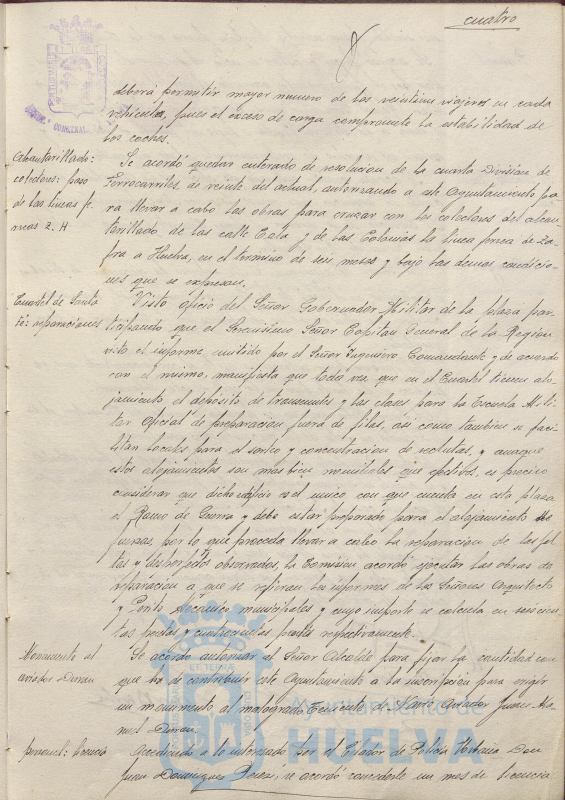 cuatro
deberá permitir mayor numero de los veintiun viajeros en cada
vehículo, pues el exceso de carga compromete la estabilidad de
los coches.
Alcantarillado:
colectores: paso
de las lineas fe-
rreas Z. H
Se acordó quedar enterado de resolucion de la cuarta Division de
Ferrocarriles de veinte del actual, autorizando a este Ayuntamiento pa-
ra llevar a cabo las obras para cruzar con los colectores del alcan-
tarillado de las calle Cala y de las Colonias la linea ferrea de Za-
fra a Huelva, en el termino de seis meses y bajo las demas condicio-
nes que se expresan.
Cuartel de Santa
Fé: reparaciones
Visto oficio del Señor Gobernador Militar de la plaza par-
ticipando que el Señor Capitan General de la Region
visto el informe emitido por el Señor Ingeniero Comandante y de acuerdo
con el mismo, manifiesta que toda vez que en el Cuartel tienen alo-
jamiento el depósito de transeuntes y las clases para la Escuela Mili-
tar Oficial de preparacion fuera de filas, asi como tambien se faci-
litan locales para el sorteo y concentracion de reclutas, y aunque
estos alojamientos son mas bien que efectivos, es preciso
considerar que dicho edificio es el unico con que cuenta en esta plaza
el Ramo de Guerra y debe estar preparado para el alojamiento de
fuerzas, por lo que procede llevar a cabo la reparacion de las fal-
tas y observados, la Comisión acordó ejecutar las obras de
reparacion a que se refieren los informes de los Señores Arquitecto
y Perito Mecánico municipales y cuyo importe se calcula en seiscien-
tas pesetas y cuatrocientas pesetas respectivamente.
Monumento al
aviador Duran
Se acordó autorizar al Señor Alcalde para fijar la cantidad con
que ha de contribuir este Ayuntamiento a la suscripcion para erigir
un monumento al malogrado Teniente de Navio Aviador Juan Ma-
nuel Duran.
personal: licencia
Accediendo a lo interesado por el Celador de Policia Urbana Don
Juan Dominguez Perez, se acordó concederle un mes de licencia
Ayuntamiento de
HUELVA